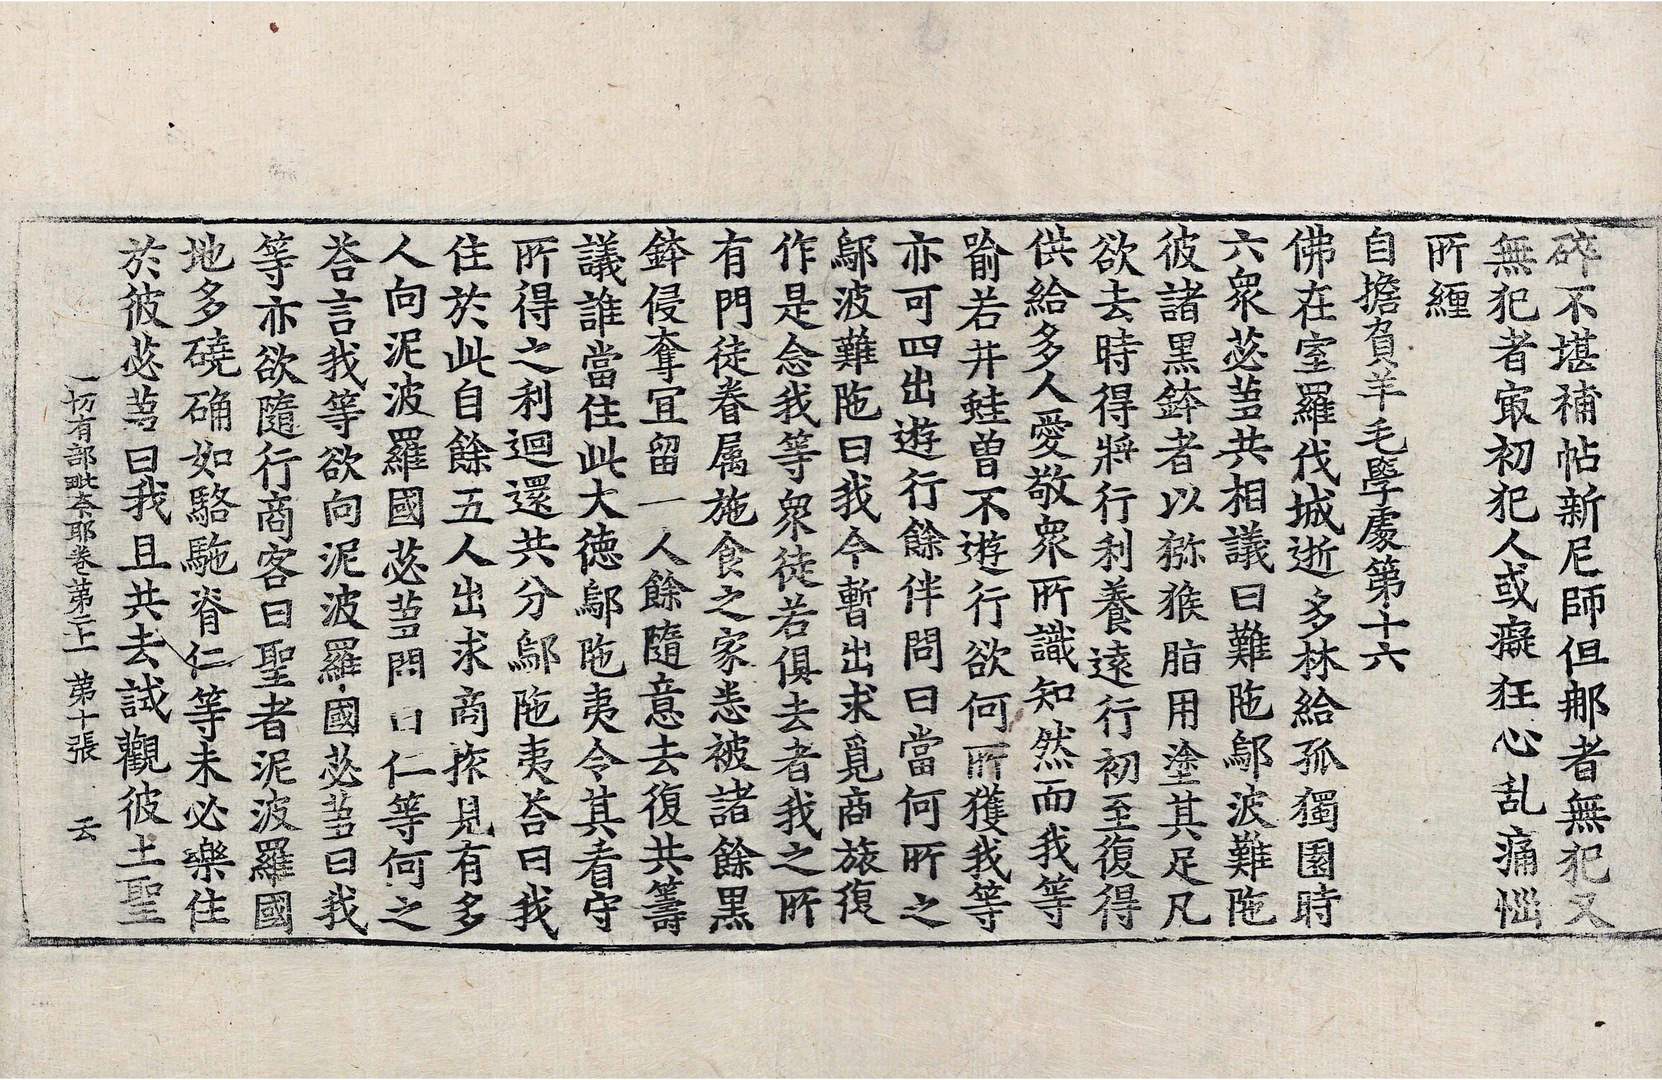 碎不堪補帖新尼師但那者無犯又
無犯者㝡初犯人或癡狂心乱痛惱
所纏
自擔負羊毛學處第十六
佛在室羅伐城逝多林給孤獨園時
六衆苾芻共相議曰難陁鄔波難陁
彼諸黑鉢者以猕猴脂用塗其足凡
欲去時得將行利養遠行初至復得
供給多人愛敬衆所識知然而我等
喻若井蛙曾不遊行欲何所獲我等
亦可四出遊行餘伴問曰當何所之
鄔波難陁曰我今暫出求覓商旅復
作是念我等衆徒若俱去者我之所
有門徒眷属施食之家悉被諸餘黒
鉢侵奪宜留一人餘隨意去復共籌
議誰當住此大德鄔陁夷令其看守
所得之利迴還共分鄔陁夷荅曰我
住於此自餘五人出求商旅見有多
人向泥波羅國苾芻問曰仁等何之
荅言我等欲向泥波羅國苾芻曰我
等亦欲隨行商客曰聖者泥波羅國
地多磽确如駱駞脊仁等未必樂住
於彼苾芻曰我且共去試觀彼土聖
一切有部毗奈耶卷第二十一 第十張 云